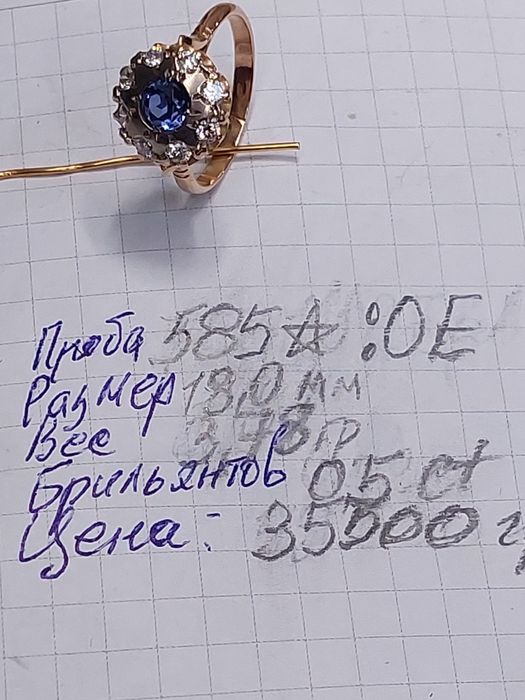 Проба 585☆ :ОЕ
Размер 18,0 мм
Вес 3,43 гр
Брильянтов 0,5 ct
Цена: 35500 г